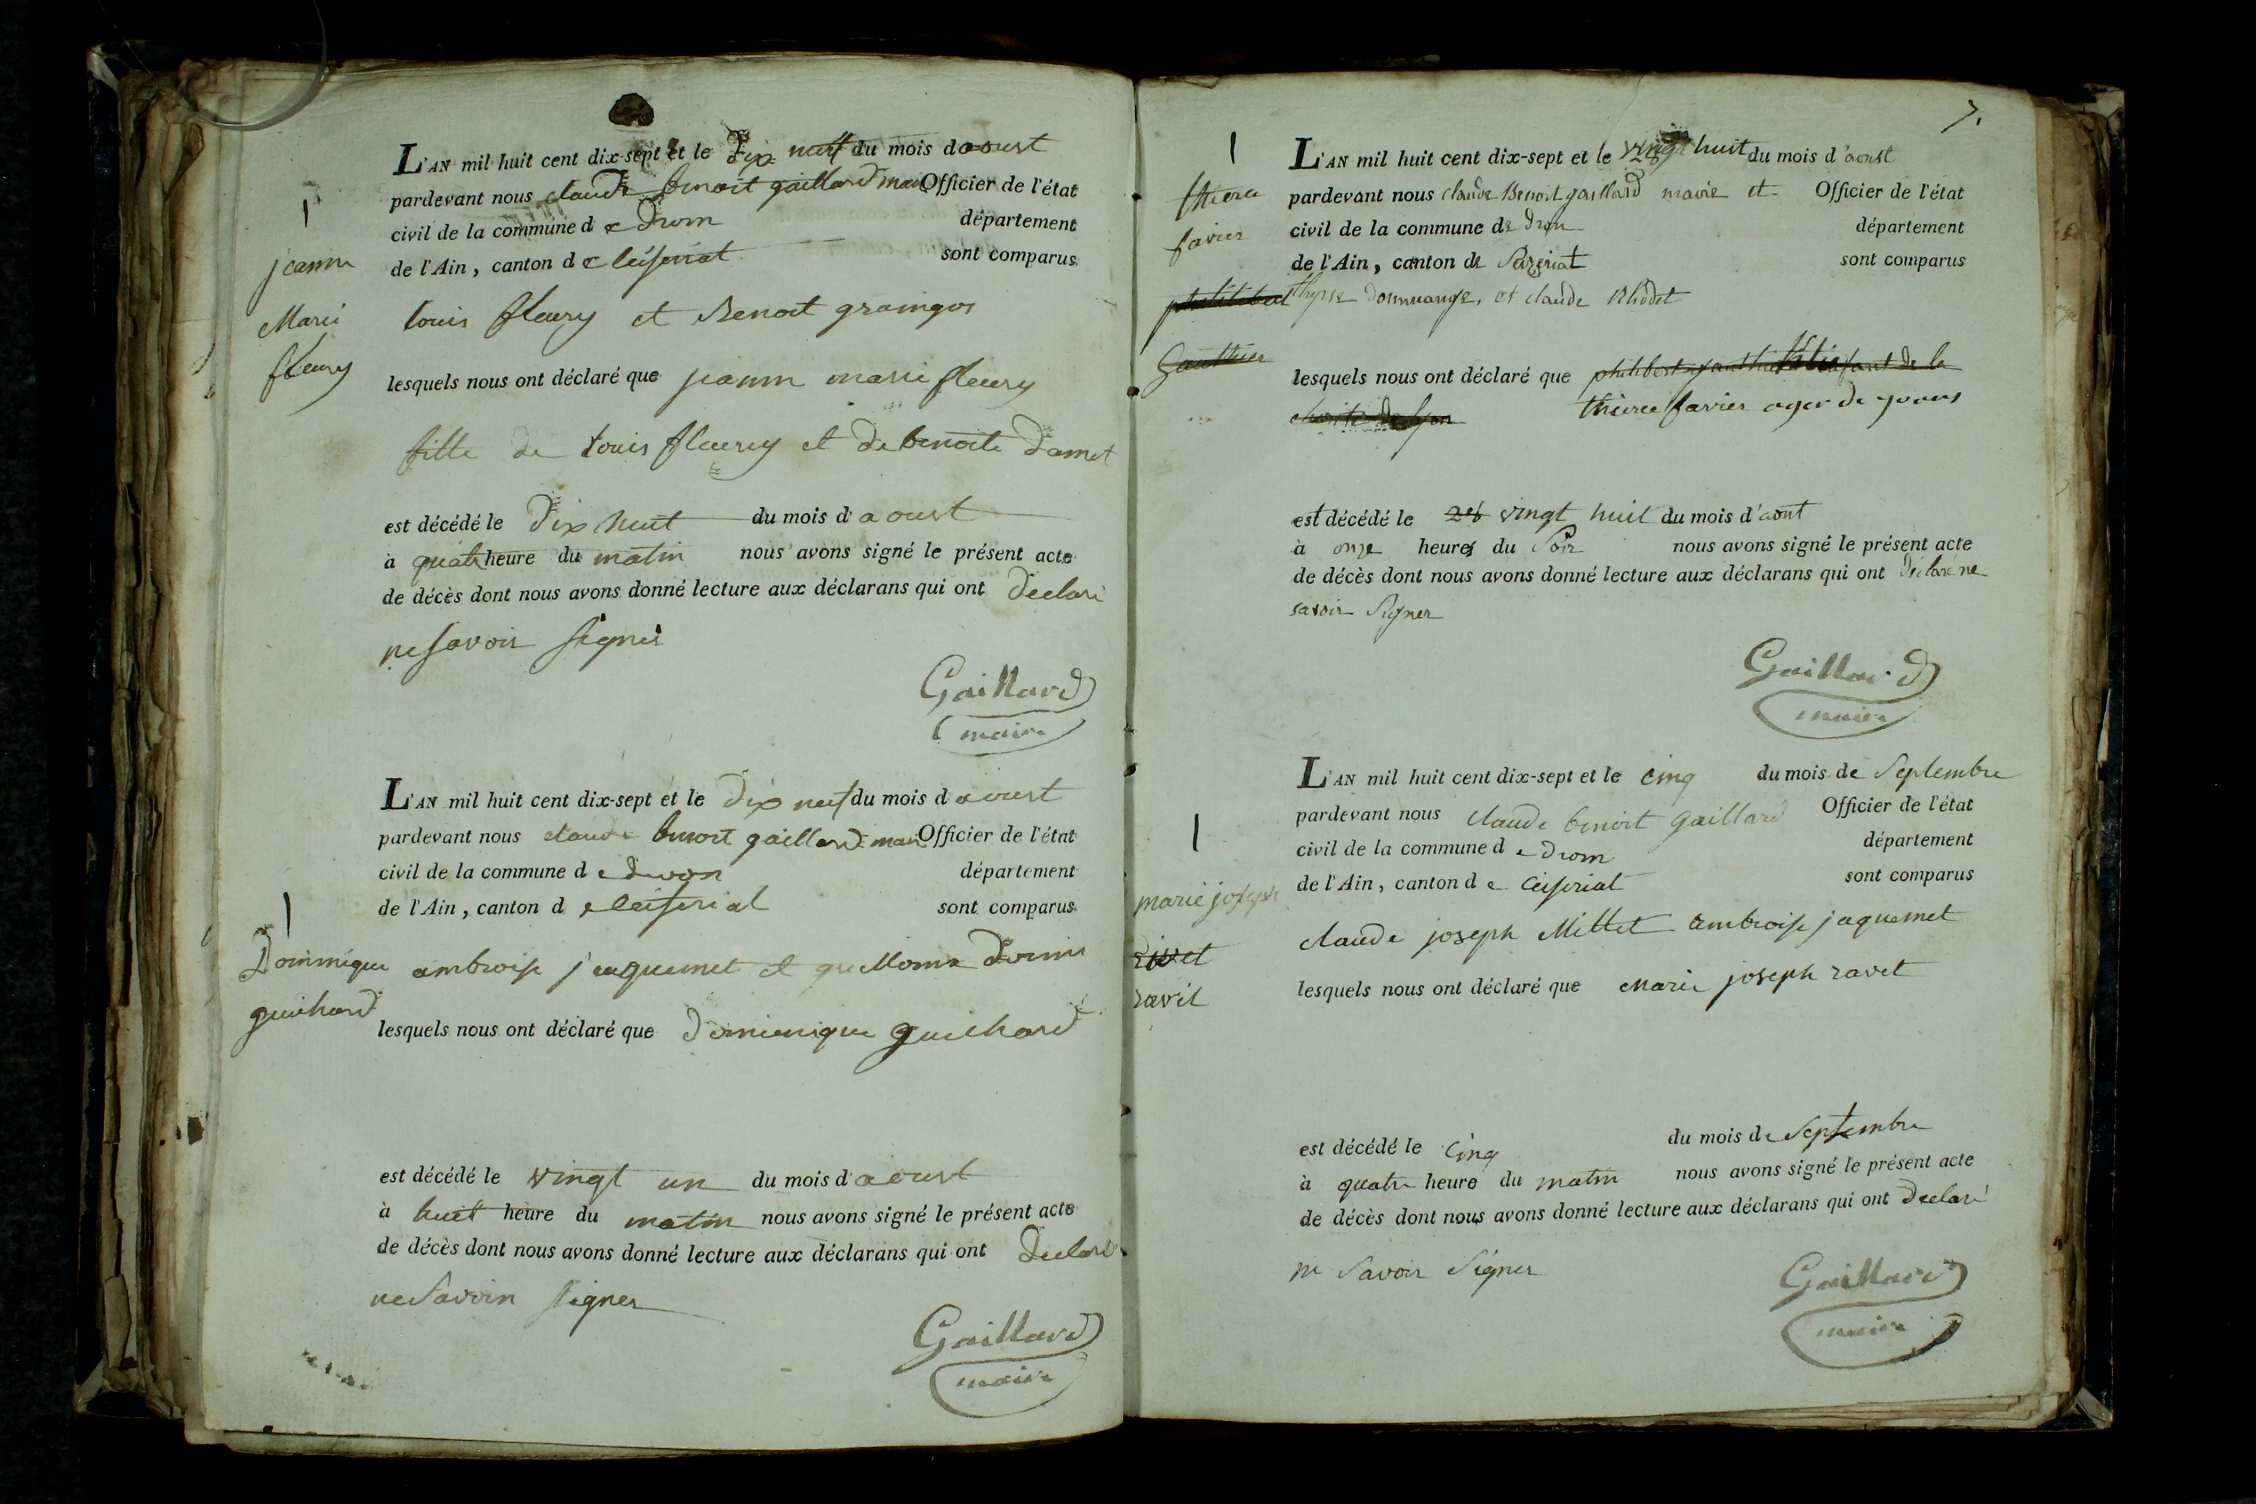 L'AN mil huit cent dix-sept et le Dix neuf du mois d aoust
pardevant nous claude benoit gaillard maire Officier de l'état
civil de la commune d e Drom département
de l'Ain, canton d e Ceiseriat sont comparus
jeanne
Marie
fleury
louis fleury et Benoit
lesquels nous ont déclaré que jeanne marie fleury
fille de louis fleurey et de benoite damet
est décédé le Dix huit du mois d'aoust
à quatre heure du matin nous avons signé le présent acte
de décès dont nous avons donné lecture aux déclarans qui ont declaré
ne savoir signer
Gaillard
maire
L'AN mil huit cent dix-sept et le dix neuf du mois d aoust
pardevant nous claude benoit gaillard maire Officier de l'état
civil de la commune d e drom département
de l'Ain, canton d e Ceiseriat sont comparus
Dominique
guichard
ambroise jaquemet et
lesquels nous ont déclaré que dominique guichard
est décédé le vingt un du mois d'aoust
à huit heure du matin nous avons signé le présent acte
de décès dont nous avons donné lecture aux déclarans qui ont declaré
ne Savoir signer
Gaillard
maire
7.
L'AN mil huit cent dix-sept et le vingt huit du mois d'aoust
pardevant nous claude Benoit gaillard maire et Officier de l'état
civil de la commune de Drom département
de l'Ain, canton de Sezeriat sont comparus
favier
philibert
Gauthier
et claude Rhodet
lesquels nous ont déclaré que philibert gauthier enfant de la
charité de lyon
favier ager de
est décédé le 28 vingt huit du mois d'aout
à onze heures du Soir nous avons signé le présent acte
de décès dont nous avons donné lecture aux déclarans qui ont déclaré ne
savoir Signer
Gaillard
maire
L'AN mil huit cent dix-sept et le cinq du mois de Septembre
pardevant nous claude benoit gaillard Officier de l'état
civil de la commune d e Drom département
de l'Ain, canton d e Ceiseriat sont comparus
marie joseph
rivet
ravet
claude joseph Millet ambroise jaquemet
lesquels nous ont déclaré que Marie joseph ravet
est décédé le cinq du mois de Septembre
à quatre heure du matin nous avons signé le présent acte
de décès dont nous avons donné lecture aux déclarans qui ont declaré
ne Savoir Signer
Gaillard
maire